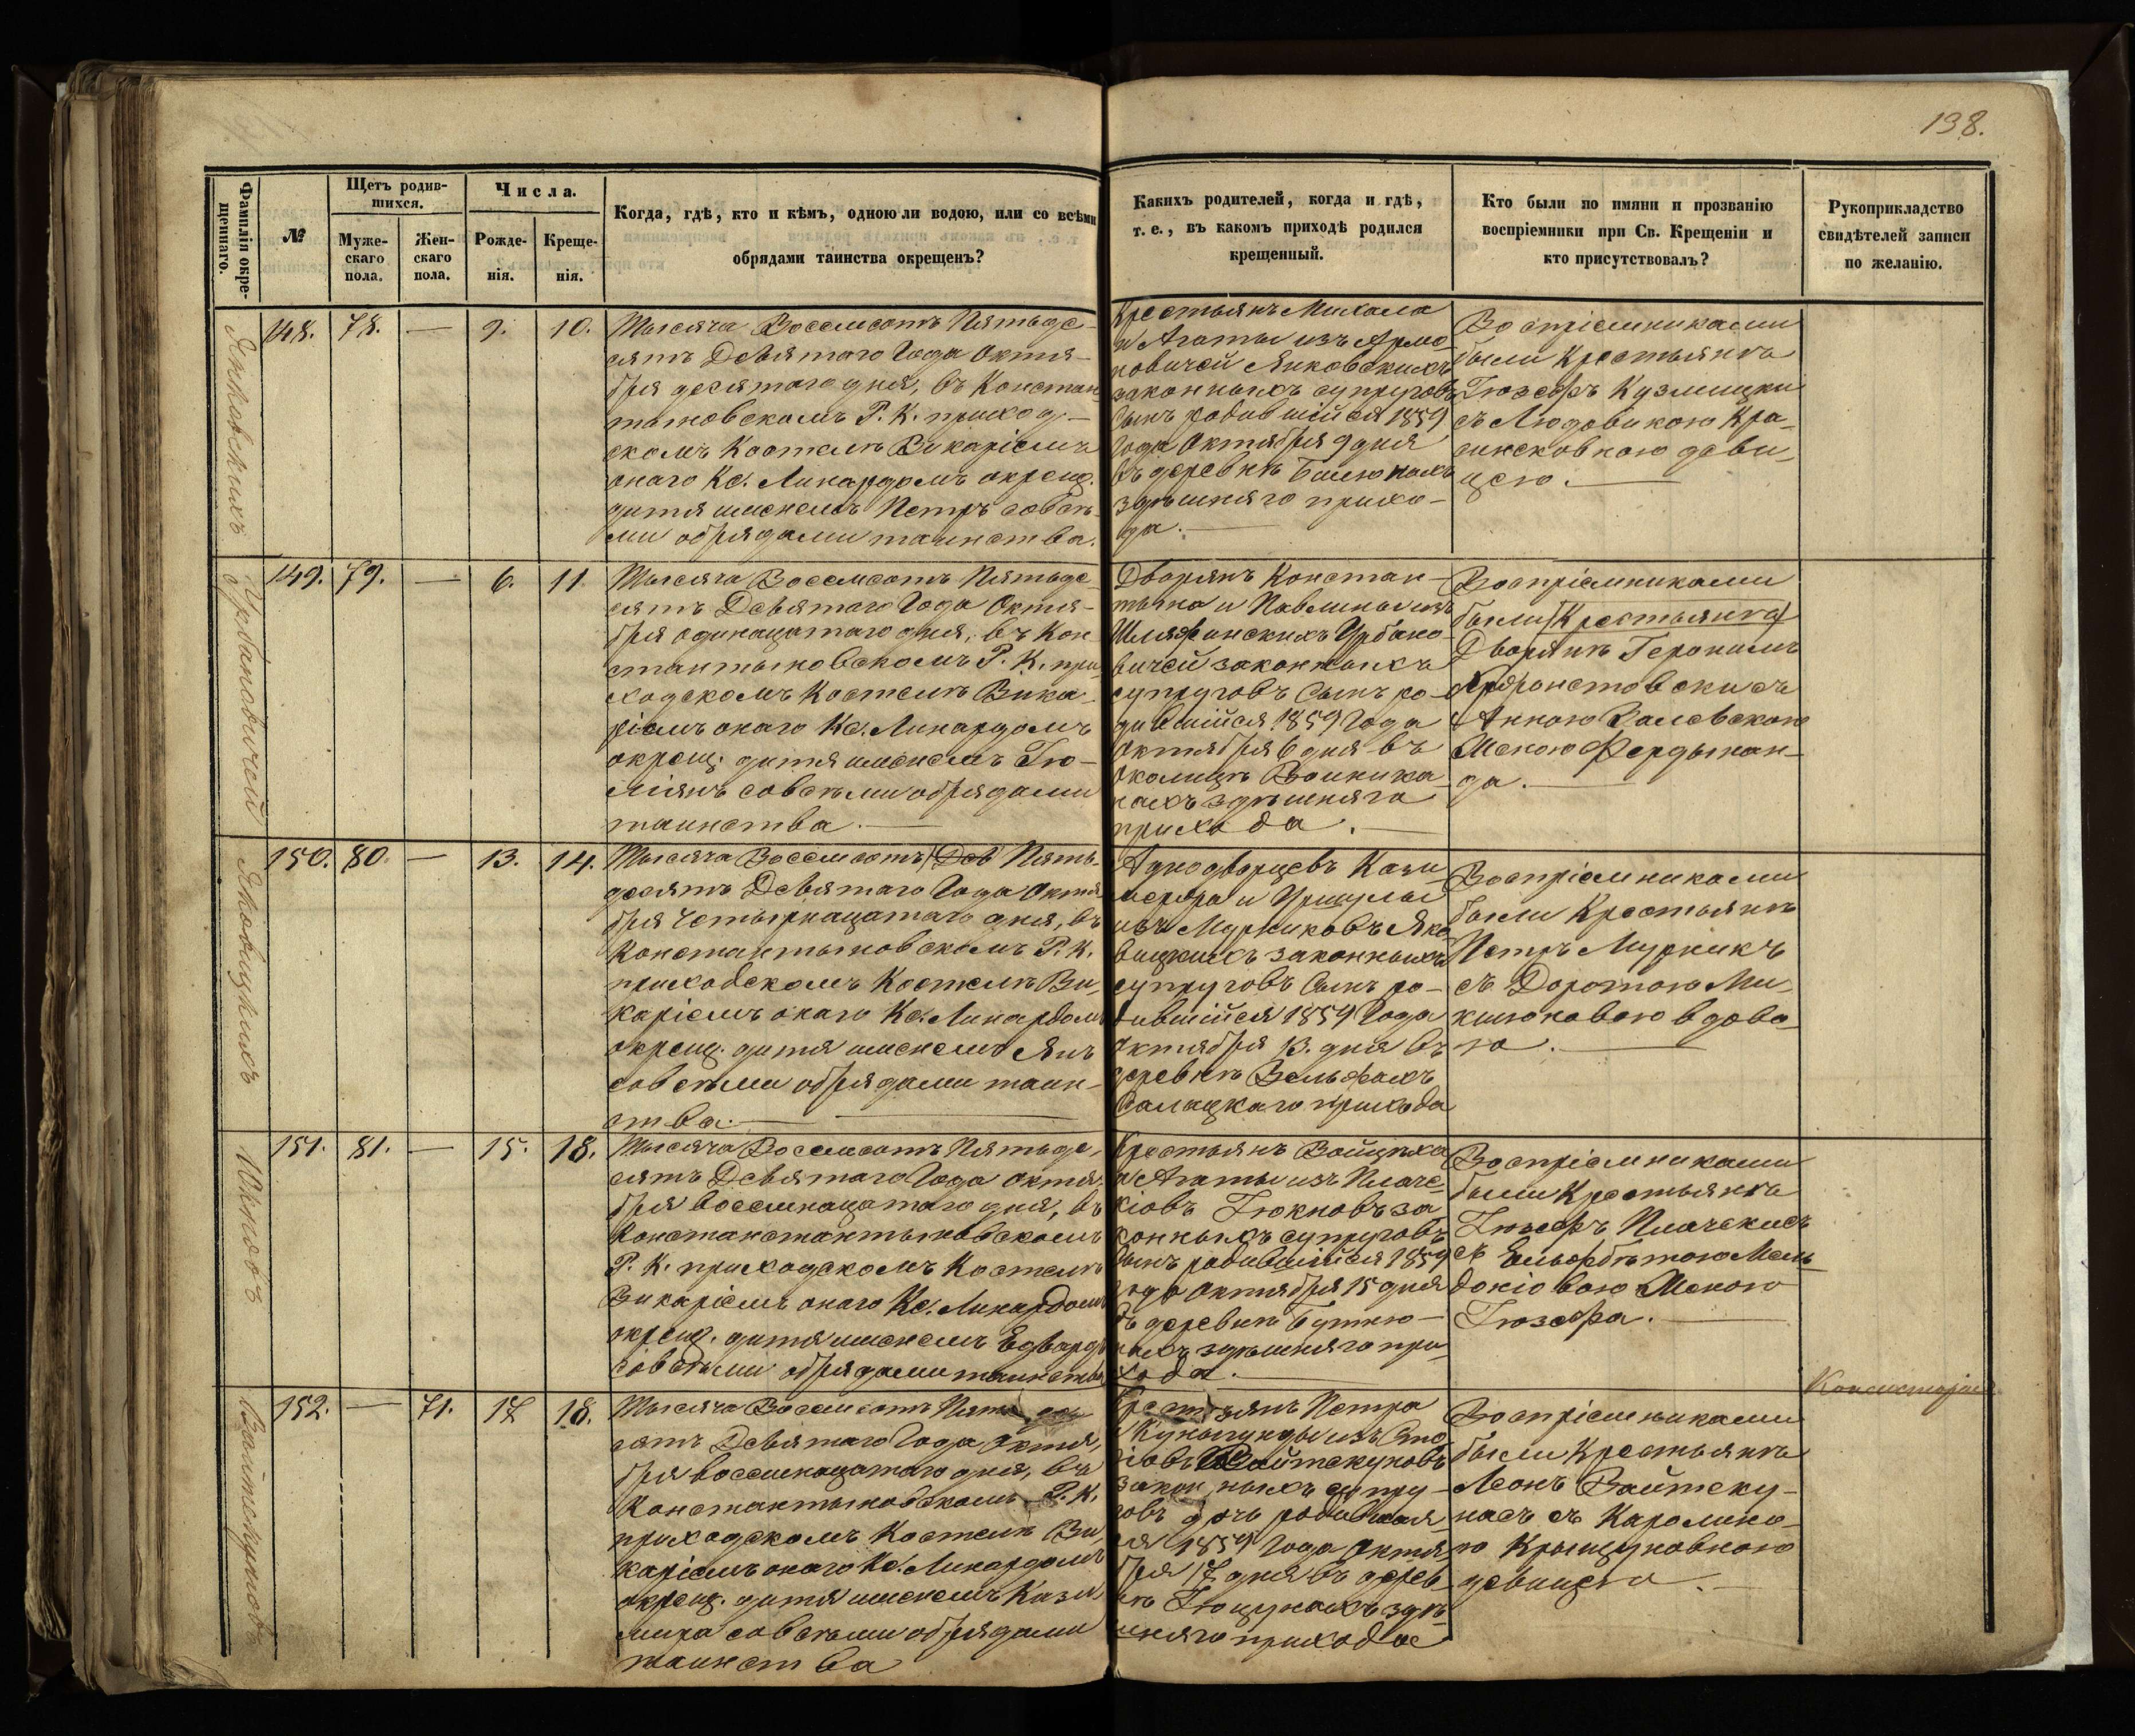 138.
Фамилія окре-
щеннаго.
№
Щетъ родив-
шихся.
Муже-
скаго
пола.
Жен-
скаго
пола.
Числа.
Рожде-
нія.
Креще-
нія.
Когда, гдѣ, кто и кѣмъ, одною ли водою, или со всѣми
обрядами таинства окрещенъ?
Какихъ родителей, когда и гдѣ,
т. е., въ какомъ приходѣ родился
крещенный.
Кто были по имяни и прозванію
воспріемники при Св. Крещеніи и
кто присутствовалъ?
Рукоприкладство
свидѣтелей записи
по желанію.
Янковскихъ
148.
78.
—
9.
10.
Тысяча Восемсотъ Пятьде-
сятъ Девятаго Года Октя-
бря десятаго дня, въ Констан-
тыновскомъ Р. К. приход-
скомъ Костелѣ Викаріемъ
онаго Кс. Линардомъ окрещ.
дитя именемъ Петръ совсѣ-
ми обрядами таинства.
Крестьянъ Михала
и Агаты изъ Ярмо-
новичей Янковскихъ
законныхъ супруговъ
сынъ родившійся 1859
Года Октября 9 дня
въ деревнѣ
здѣшняго прихо-
да.
Воспріемниками
были Крестьянѣ
Іюзефъ Кузмицки
съ Людовикою Кра-
синсковною деви-
цею.
Урбановичей
149.
79.
—
6.
11
Тысяча Восемсотъ Пятьде-
сятъ Девятаго Года Октя-
бря одинацатаго дня, въ Кон-
стантыновскомъ Р. К. при-
ходскомъ Костелѣ Вика-
ріемъ онаго Кс. Линардомъ
окрещ. дитя именемъ Гю-
ліянъ совсѣми обрядами
таинства.
Дворянъ Констан-
тына и Павлины изъ
Шляфинскихъ Урбано-
вичей законныхъ
супруговъ Сынъ ро-
дившійся 1859 Года
Октября 6 дня въ
Околицѣ
здѣшняго
прихода.
Воспріемниками
были (Крестьянѣ)
Дворянѣ Геронимъ
съ
Анною Залевскою
Женою Фердынан-
да.
Яковицкихъ
150.
80.
—
13.
14.
Тысяча Восемсотъ (Дев) Пять-
десятъ Девятаго Года Октя-
бря Четырнацатаго дня, въ
Константыновскомъ Р. К.
приходскомъ Костелѣ Ви-
каріемъ онаго Кс. Линардомъ
окрещ. дитя именемъ Янъ
совсѣми обрядами таин-
ства.
Аднодворцевъ Кази-
мера и Уршулы
изъ Мурниковъ Яко-
вицкихъ законныхъ
супруговъ Сынъ ро-
дившійся 1859 Года
Октября 13. дня въ
деревнѣ
Салацкаго прихода
Воспріемниками
были Крестьянѣ
Петръ Мурникъ
съ Доротою Ми-
кшоновою вдово-
ю.
Юкновъ
151.
81.
—
15.
18.
Тысяча Восемсотъ Пятьде-
сятъ Девятаго Года Октя-
бря восемнацатаго дня, въ
Констанстантыновскомъ
Р. К. приходскомъ Костелѣ
Викаріемъ онаго Кс. Линардомъ
окрещ. дитя именемъ Едвардъ
совсѣми обрядами таинства
Крестьянъ Войцѣха
и Агаты изъ Плаче-
кіовъ Гюкновъ за-
конныхъ супруговъ
сынъ родившійся 1859
года Октября 15 дня
въ деревни
здѣшняго при-
хода.
Воспріемниками
были Крестьянѣ
Гюзефъ Плачекисъ
съ Ельжбѣтою Мень-
докіовою Женою
Гюзефа.
Войтскуновъ
152.
—
71.
17
18.
Тысяча Восемсотъ Пятьде-
сятъ Девятаго Года Октя-
бря восемнацатаго дня, въ
Константыновскомъ Р. К.
приходскомъ Костелѣ Ви-
каріемъ онаго Кс. Линардомъ
окрещ. дитя именемъ Кази-
мира совсѣми обрядами
таинства
Крестьянъ Петра
и Куныгунды изъ
Войтскуновъ
законныхъ супру-
говъ дочь родившая-
ся 1859 Года Октя-
бря 17 дня въ дерев-
нѣ Гюцунахъ здѣ-
шняго прихода
Воспріемниками
были Крестьянѣ
Леонъ Войтску-
насъ съ Каролино-
ю Крыщуновною
девицею.